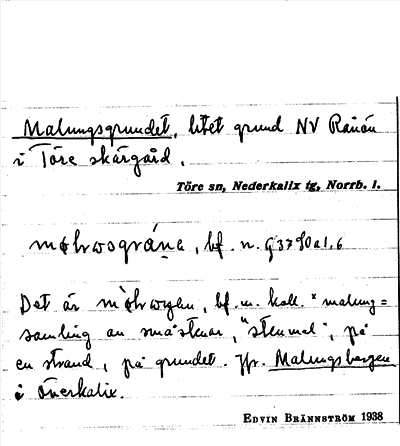 Malungsgrundet, litet grund NV Rånön
i Töre skärgård.
Töre sn, Nederkalix tg, Norrb. l.
bf. n.
Det är bf. n. koll. *malung=
samling av småstenar, "stenmal", på
en strand, på grundet. Jfr. Malungsbergen
i Överkalix.
EDVIN BRÄNNSTRÖM 1938